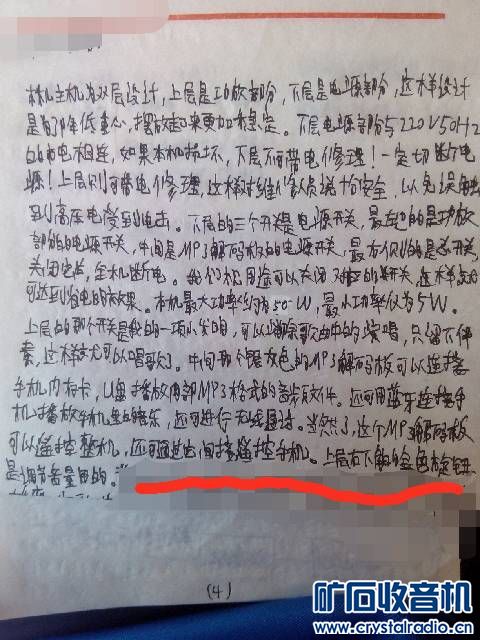 本机主机为双层设计，上层是功放部份，下层是电源部份，这样设计
是为了降低重心，摆放起来更加稳定。下层电源部份与220V50HZ
的市电相连，如果本机损坏，下层不可带电修理！一定切断电
源！上层则可带电修理，这样对维修人员说十分安全，以免误触
到高压电受到电击。下层的三个开关是电源开关，最左边的是功放
部份的电源开关，中间是MP3解码板的电源开关，最右侧的是总开关，
关闭之后，全机断电。我们不用时可以关闭对应的开关，这样就
可达到省电的效果。本机最大功率约为50W，最小功率仅为5W。
上层的那个开关是我的一项小发明，可以消除歌曲中的演唱，只留下伴
奏，这样就可以唱歌了。中间那个银灰色的MP3解码板可以连接
手机内存卡，U盘播放内部MP3格式的音频文件。还可用蓝牙连接手
机播放手机里的音乐，还可进行无线通话。当然了，这个MP3解码板
可以遥控整机，还可通过它间接遥控手机。上层右下角的金色旋钮
是调节音量用的。
(4)
矿石收音机
www.crystalradio.cn